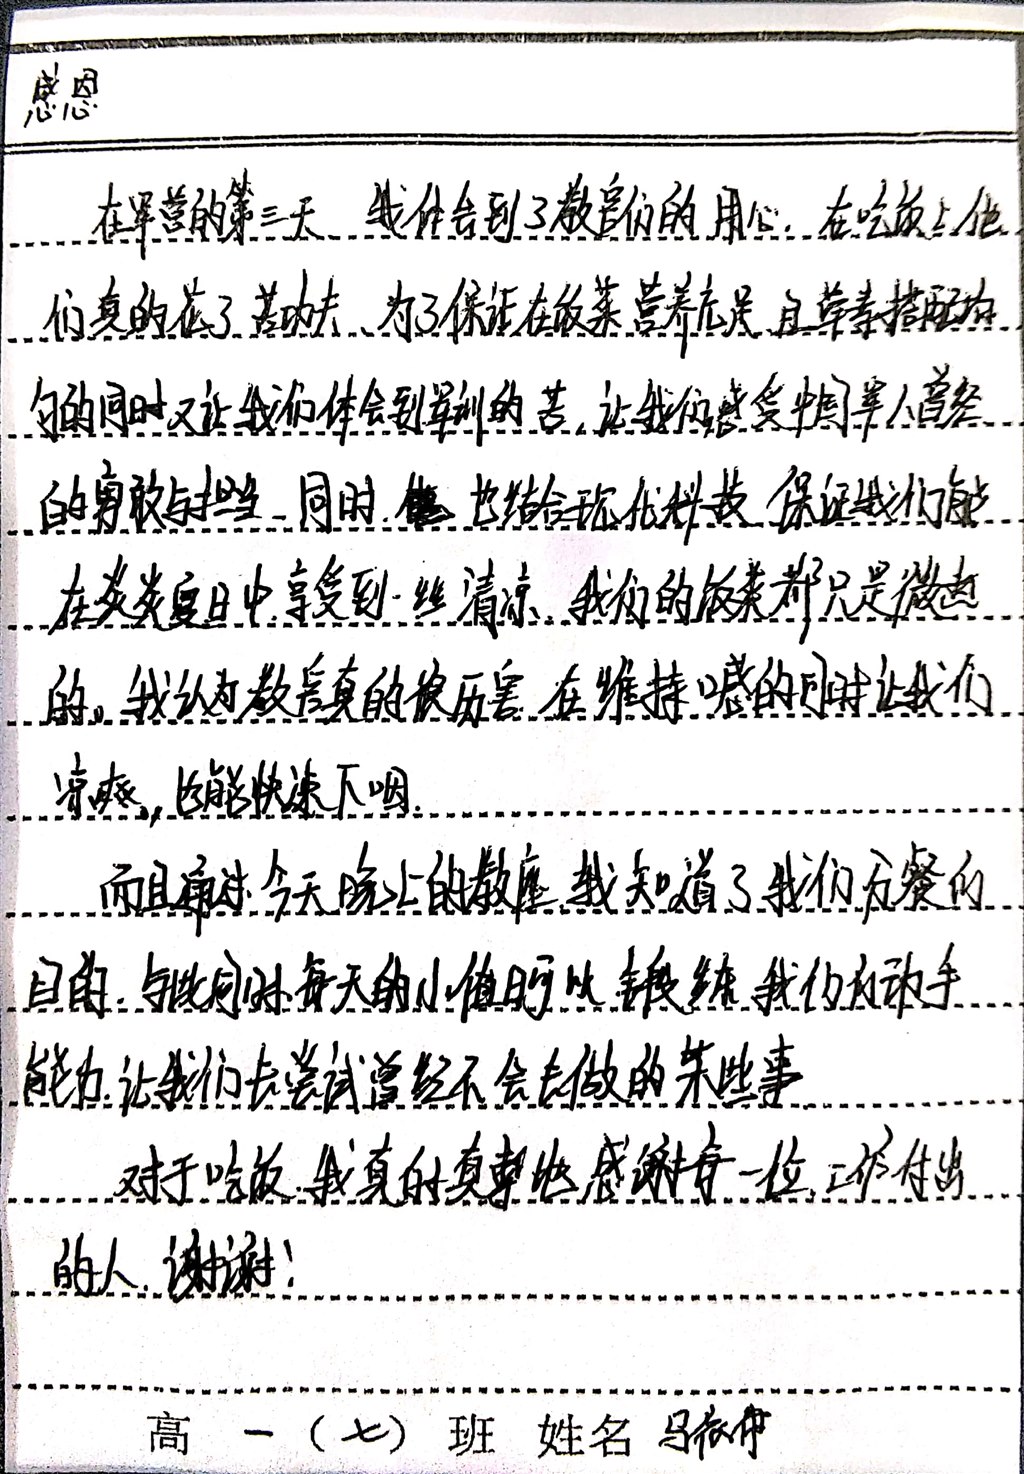 感恩
在军营的第三天 我体会到了教官们的用心. 在吃饭上他
们真的花了苦功夫、为了保证在饭菜营养充足 且荤素搭配均
匀的同时又让我们体会到军训的苦,让我们感受中国军人曾经
的勇敢与担当 同时 也结合现代科技 保证我们能
在炎炎夏日中享受到一丝清凉、我们的饭菜都只是微
的。我认为教官真的很历害 在维持 的同时让我们
凉爽,, 能快速下咽.
而且通过今天晚上的教 我知道了我们 餐的
目的. 与此同时.每天的小值日可以锻练我们的动手
能力.让我们去尝试曾经不会去做的某些事
对于吃饭.我真的真 感谢每一位工作付出
的人.谢谢!
高一(七)班 姓名 马